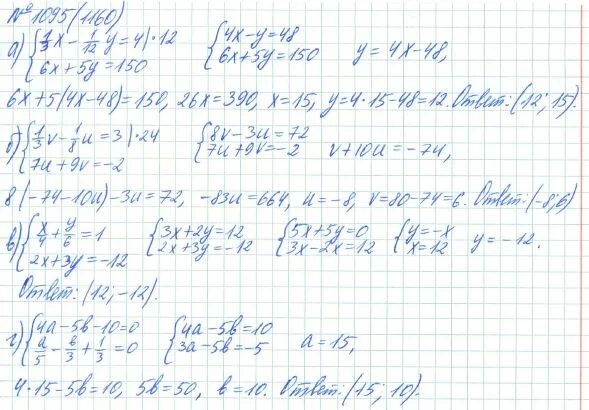 № 1095(1160)
а) { 1/3 x - 1/12 y = 4 | · 12   { 4x - y = 48
6x + 5y = 150   6x + 5y = 150   y = 4x - 48,
6x + 5(4x - 48) = 150, 26x = 390, x = 15, y = 4 · 15 - 48 = 12. Ответ: (12; 15).
б) { 1/3 v - 1/8 u = 3 | · 24   { 8v - 3u = 72
7u + 9v = -2   7u + 9v = -2   v + 10u = -74,
8(-74 - 10u) - 3u = 72, -83u = 664, u = -8, v = 80 - 74 = 6. Ответ: (-8; 6)
в) { x/4 + y/6 = 1   { 3x + 2y = 12   { 5x + 5y = 0   { y = -x
2x + 3y = -12   2x + 3y = -12   3x - 2x = 12   x = 12   y = -12.
Ответ: (12; -12).
г) { 4a - 5b - 10 = 0   { 4a - 5b = 10
a/5 - b/3 + 1/3 = 0   3a - 5b = -5   a = 15,
4 · 15 - 5b = 10, 5b = 50, b = 10. Ответ: (15; 10).